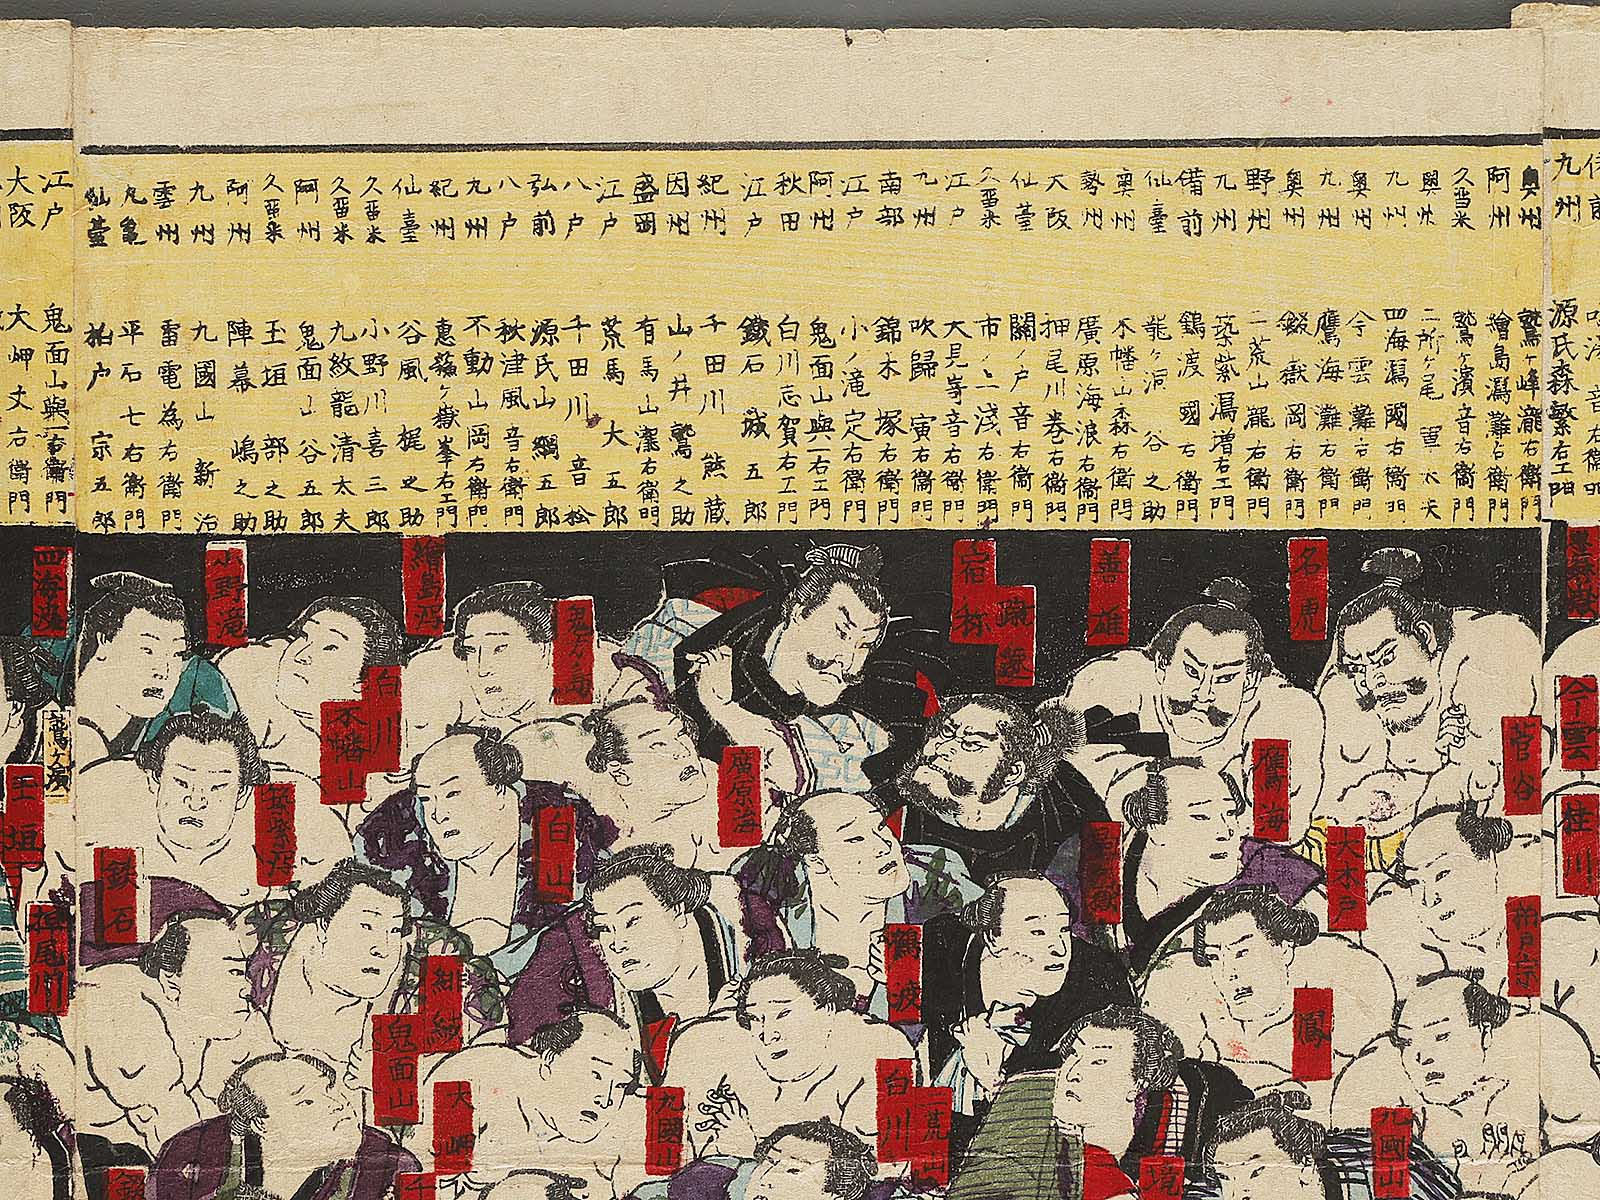 九州 源氏森繁右エ門
奥州 鷲ヶ峰瀧右衛門
阿州 繪島潟灘右衛門
久畄米 鷲ヶ濱音右衛門
奥州 二所ヶ尾
九州 四海潟國右衛門
奥州 今雲灘右衛門
九州 鷹海灘右衛門
奥州 錣嶽岡右衛門
野州 二荒山龍右衛門
九州 築紫潟増右エ門
備前 鶴渡國右衛門
仙臺 龍ヶ洞谷之助
奥州 木幡山森右衛門
勢州 廣原海浪右衛門
大阪 押尾川巻右衛門
仙臺 關ノ戸音右衛門
久畄米 市ノ上淺右衛門
江戸 大見嵜音右衛門
九州 吹歸寅右衛門
南部 錦木塚右衛門
江戸 小ノ滝定右衛門
阿州 鬼面山與一右エ門
秋田 白川志賀右エ門
江戸 鐵石城五郎
紀州 千田川熊蔵
因州 山ノ井鷲之助
盛岡 有馬山潔右衛門
江戸 荒馬大五郎
八戸 千田川音松
弘前 源氏山綱五郎
八戸 秋津風音右衛門
九州 不動山岡右衛門
紀州 恵蘓ヶ嶽峯右エ門
仙臺 谷風梶之助
久畄米 小野川喜三郎
久畄米 九紋龍清太夫
阿州 鬼面山谷五郎
久畄米 玉垣部之助
阿州 陣幕嶋之助
九州 九國山新治
雲州 雷電為右衛門
丸亀 平石七右衛門
仙臺 柏戸宗五郎
江戸 鬼面山與一右衛門
大阪 大岬丈右衛門
今雲
桂川
名虎
菅谷
柏戸宗
善雄
鷹海
大木戸
鳳
九國山
宿祢
蹴速
錣嶽
鶴波
白川
二荒山
境
廣原海
九國山
鬼ヶ島
白山
繪島潟
白川
木幡山
緋縅
鬼面山
大岬
千
小野滝
築紫潟
鉄石
四海潟
鷲ヶ濱
玉垣
押尾川